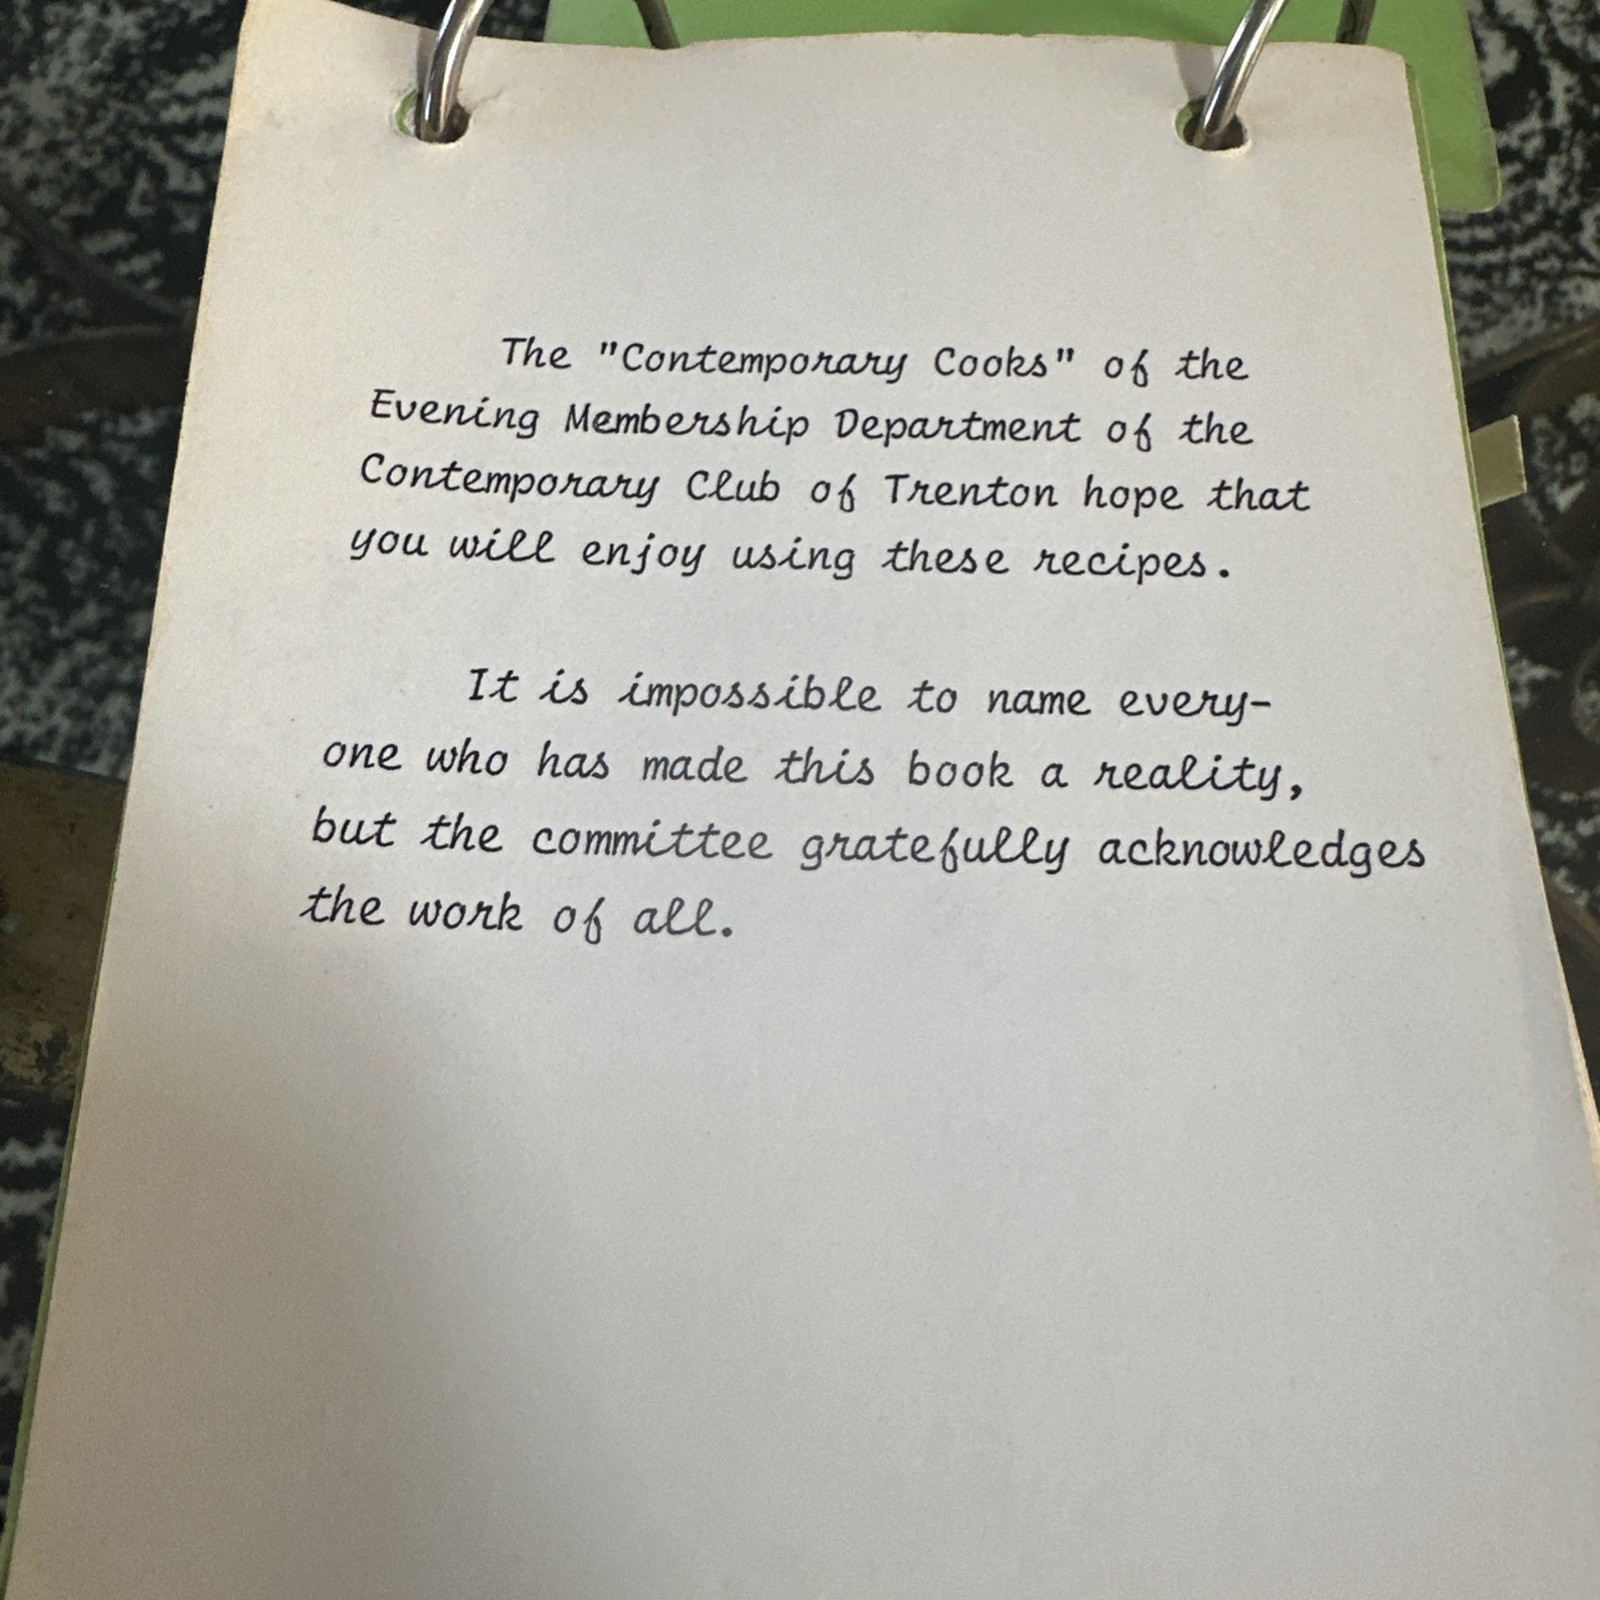 The "Contemporary Cooks" of the
Evening Membership Department of the
Contemporary Club of Trenton hope that
you will enjoy using these recipes.
It is impossible to name every-
one who has made this book a reality,
but the committee gratefully acknowledges
the work of all.